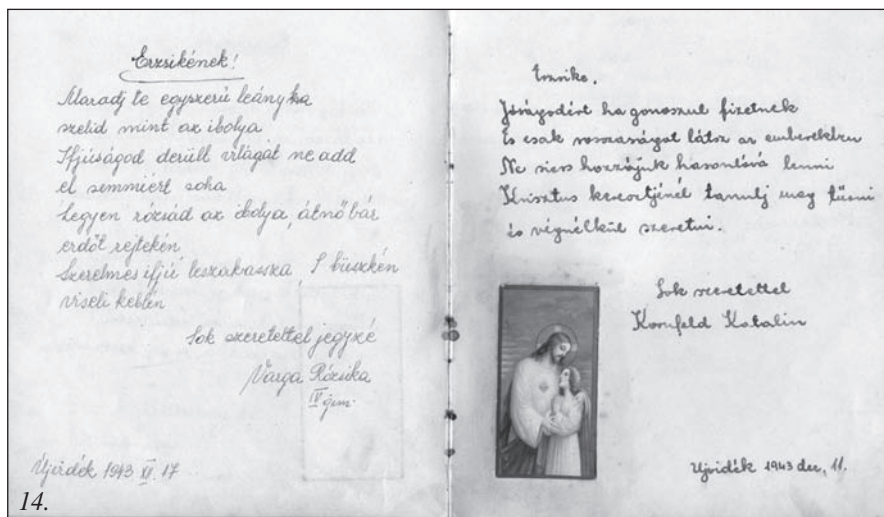 Erzsikének!
Maradj te egyszerű leányka
szelid mint az ibolya
Ifjúságod derüll virágát ne add
el semmiért soha
Legyen rózsád az ibolya, átnő bár
erdőt rejtekén
Szerelmes ifjú leszakassza, S büszkén
viseli keblén
Sok szeretettel jegyzé
Varga Rózsika
IV gim.
Újvidék 1943 XII. 17
Erzsike.
Jóságodért ha gonoszul fizetnek
És csak rosszaságot látsz az emberekben
Ne siess hozzájuk hasonlóvá lenni
Krisztus keresztjénél tanulj meg tűrni
és végnélkül szeretni.
Sok szeretettel
Kornfeld Katalin
Ujvidék 1943 dec. 11.
14.